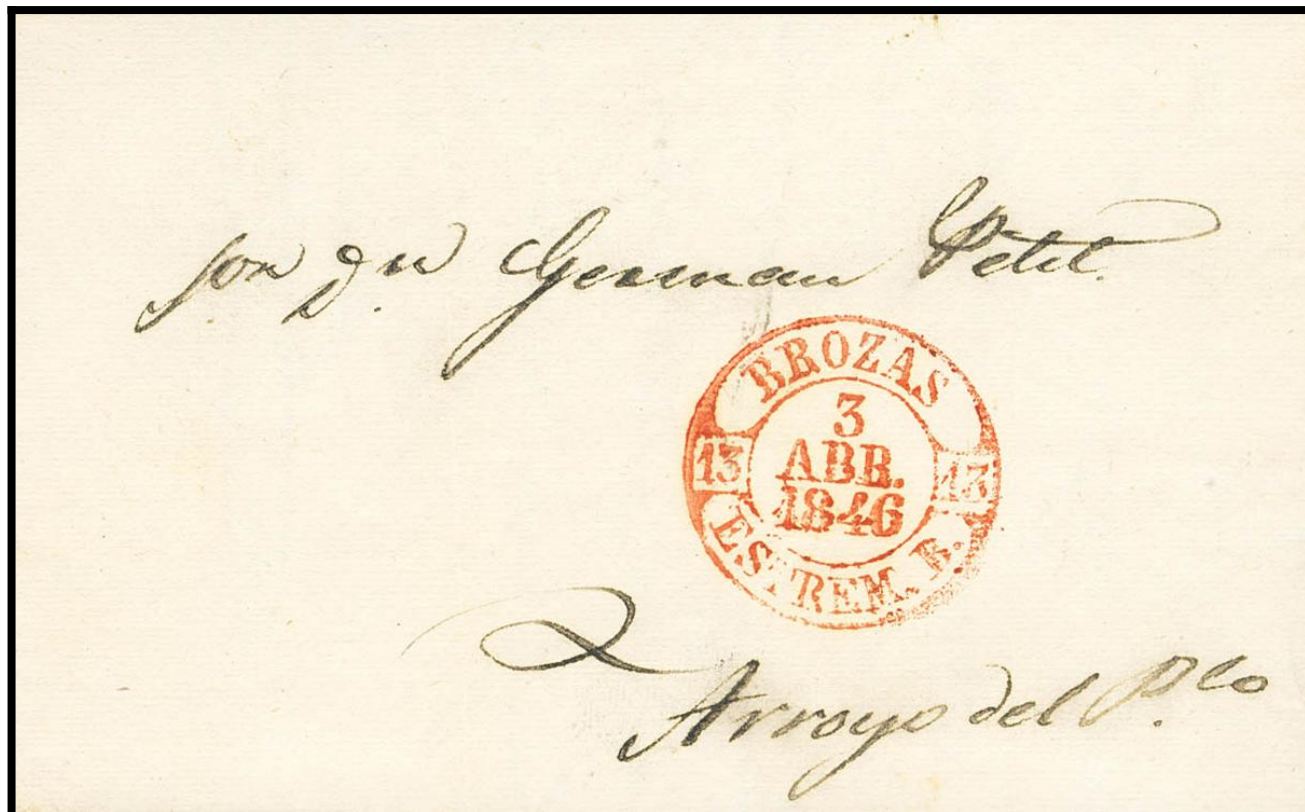 Sor. Dn. German Petit.
BROZAS
3
ABR.
1846
13 13
ESTREM. B.
Arroyo del P.co